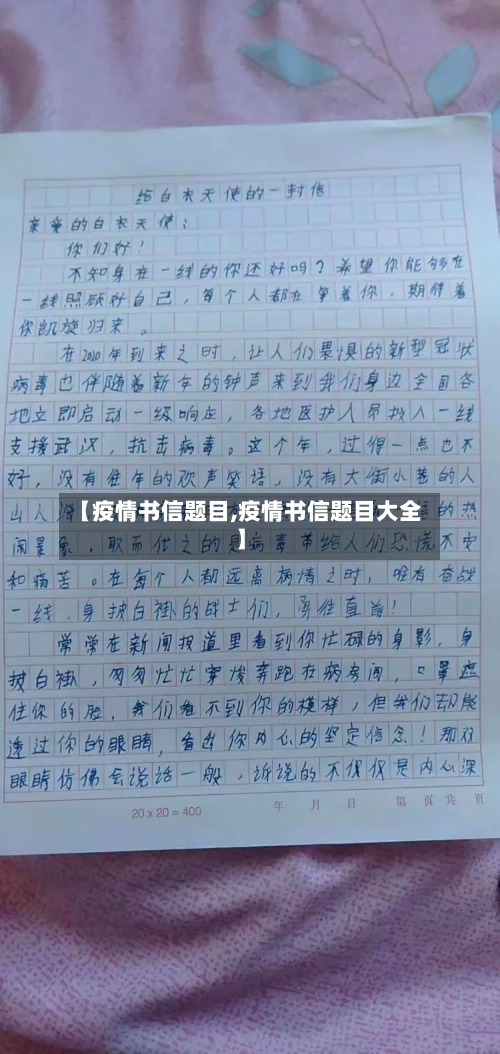 给白衣天使的一封信
亲爱的白衣天使：
你们好！
不知身在一线的你还好吗？希望你能够在
一线照顾好自己，每个人都在等着你，期待着
你凯旋归来。
在2020年到来之时，让人们畏惧的新型冠状
病毒也伴随着新年的钟声来到我们身边全国各
地立即启动一级响应，各地医护人员投入一线
支援武汉，抗击病毒。这个年，过得一点也不
好，没有往年的欢声笑语，没有大街小巷的人
山人
的热
【疫情书信题目,疫情书信题目大全
】
闹景象，取而代之的是病毒带给人们恐慌不安
和痛苦。在每个人都远离病情之时，唯有奋战
一线，身披白褂的战士们，勇往直前！
常常在新闻报道里看到你忙碌的身影，身
披白褂，匆匆忙忙穿梭奔跑在病房间，口罩遮
住你的脸，我们看不到你的模样，但我们却能
透过你的眼睛，看出你内心的坚定信念！那双
眼睛仿佛会说话一般，诉说的不仅仅是内心深
20 x 20 = 400 年 月 日 第 页 共 页